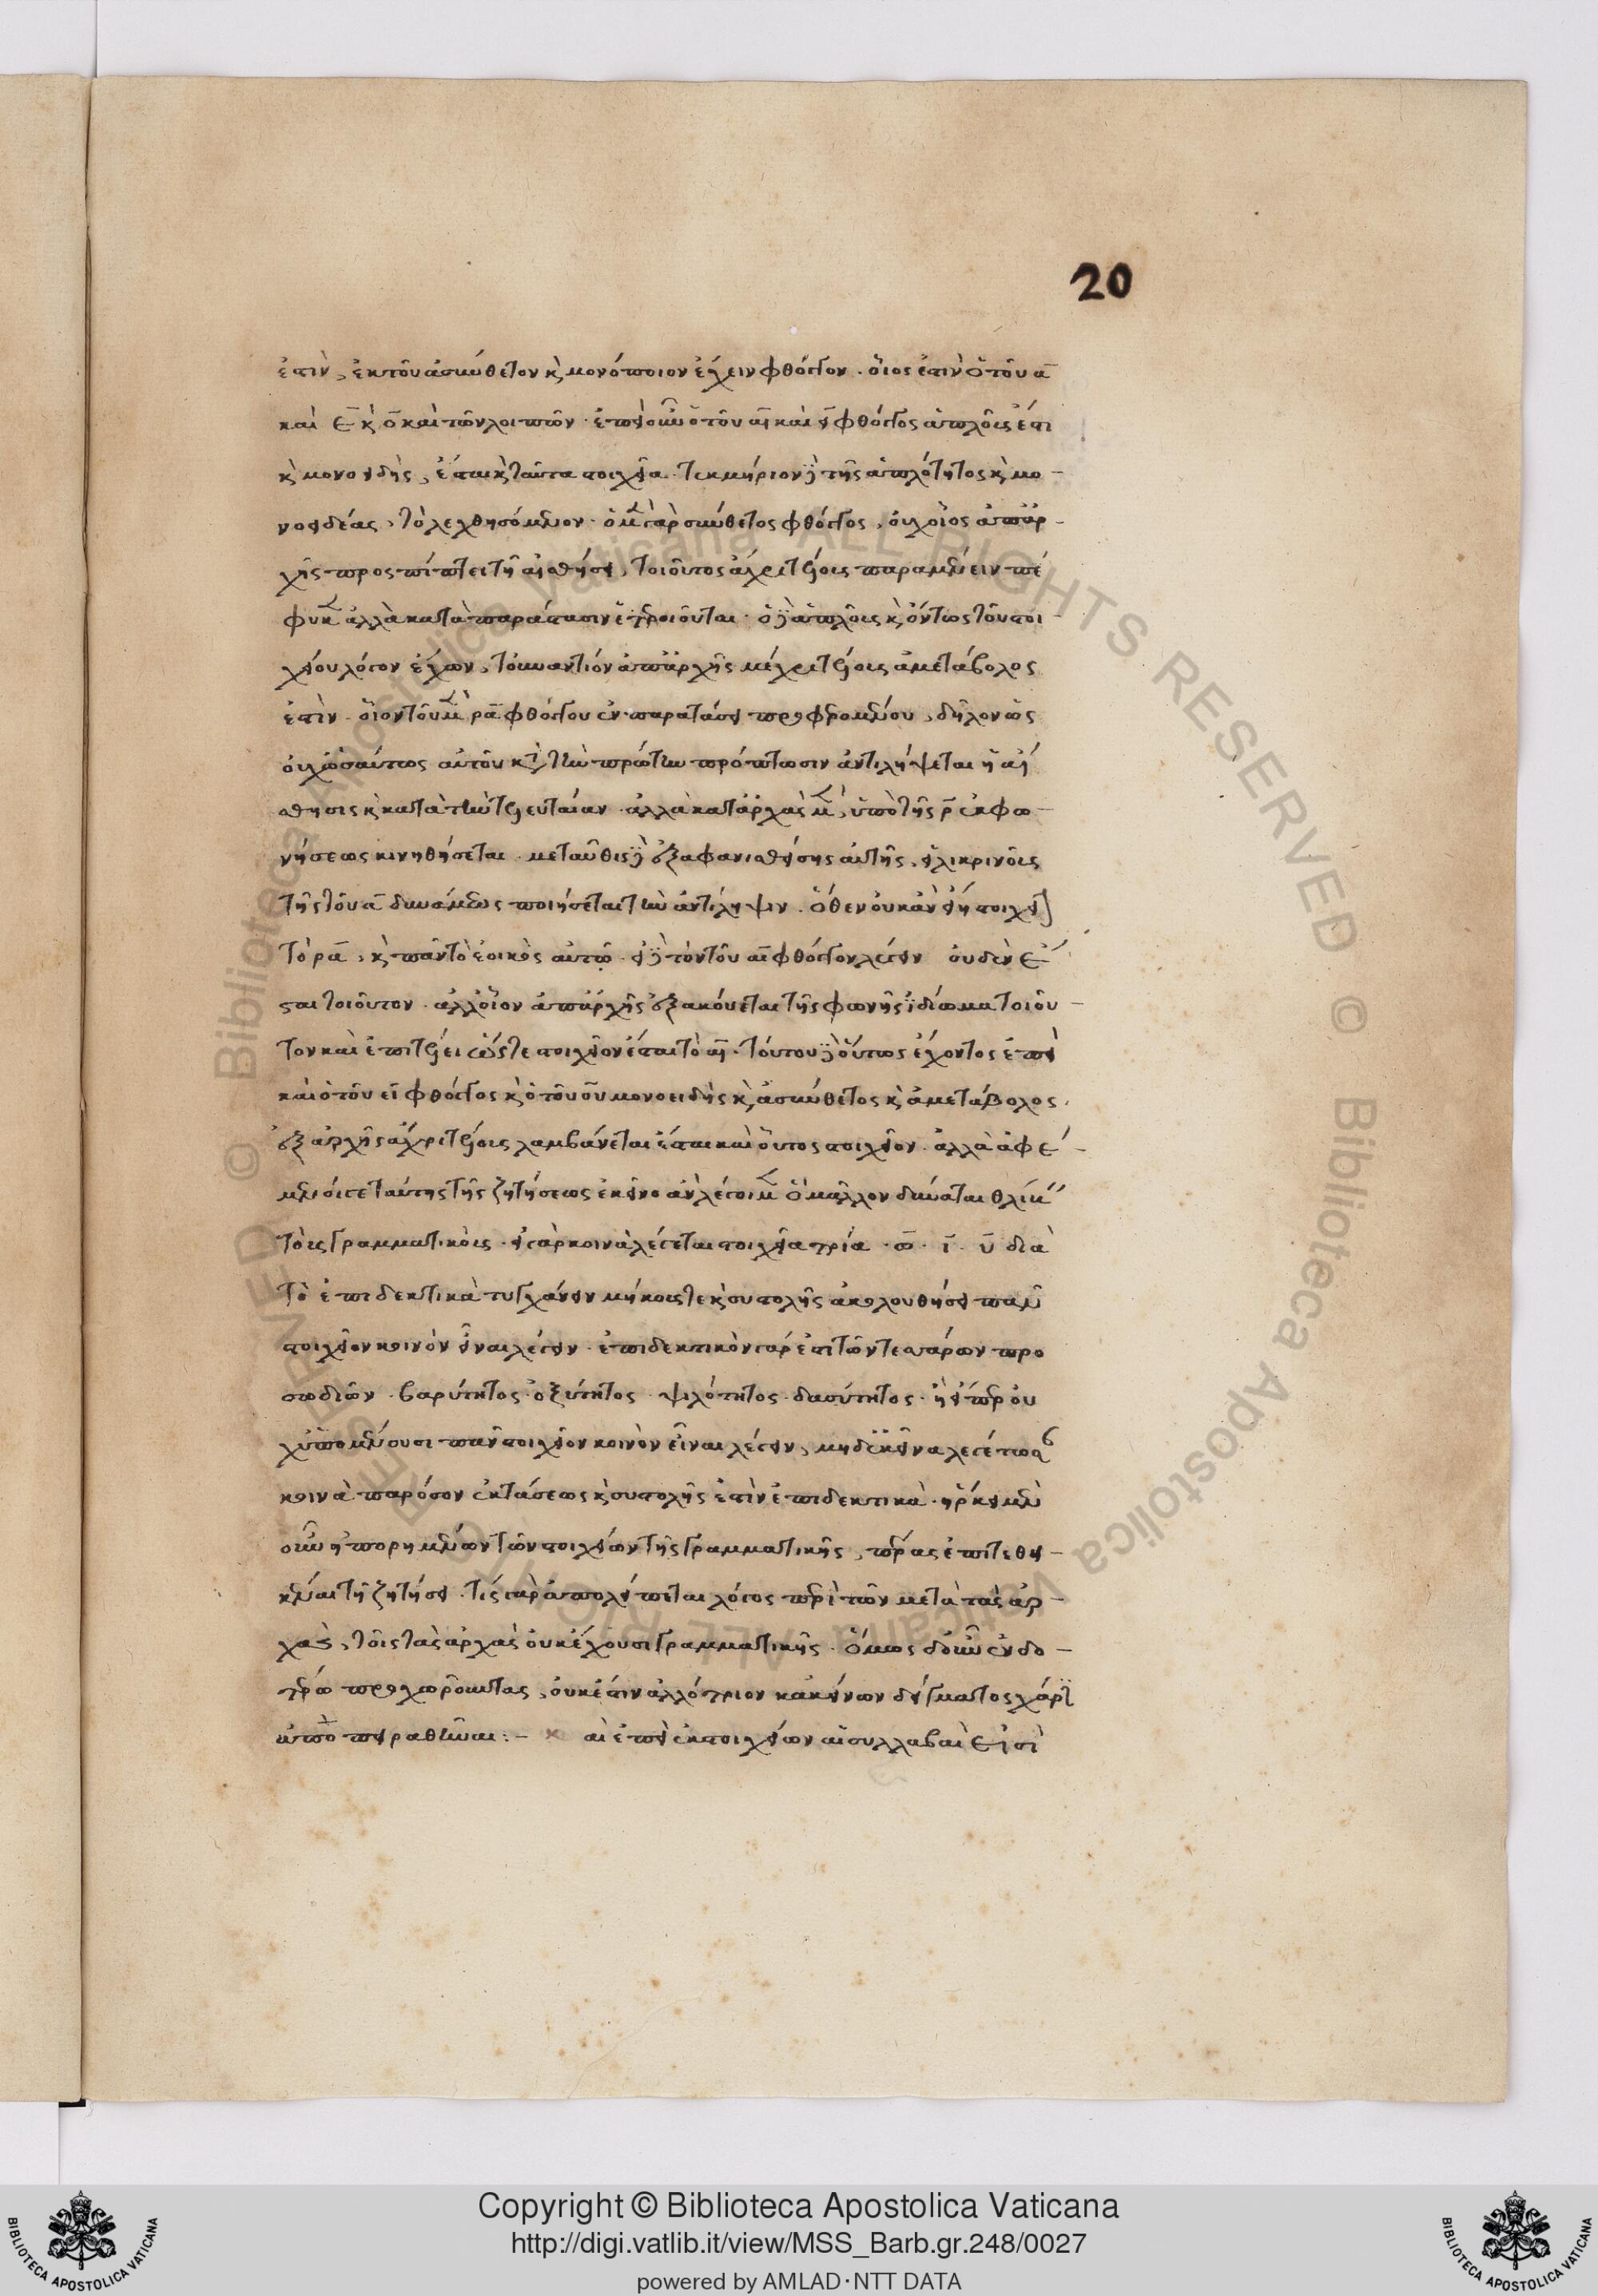 ἐστὶν, ἐκ τοῦ ἀσύνθετον κ̀ μονόποιον ἔχειν φθόγγον. οἷος ἐστὶν ὁ τοῦ α̅
καὶ ε̅ κ̀ ο̅ καὶ τῶν λοιπῶν. ἐπεὶ οὖν ὁ τοῦ αι̅ καὶ ει̅ φθόγγος ἁπλοῦς ἐστι
κ̀ μονοειδὴς, ἔσται κ̀ ταῦτα στοιχεῖα. τεκμήριον δὲ τῆς ἁπλότητος κ̀ μο-
νοειδέας, τὸ λεχθησόμενον. ὁ μὲν γὰρ σύνθετος φθόγγος, οὐχ οἷος ἀπ' ἀρ-
χῆς προσπίπτει τῇ αἰσθήσει, τοιοῦτος ἄχρι τέλους παραμένειν πέ
φυκεν ἀλλὰ κατὰ παράτασιν ἑτεροιοῦται. ὁ δὲ ἁπλοῦς κ̀ ὄντως τοῦ στοι
χείου λόγον ἔχων, τὀυναντίον ἀπ' ἀρχῆς μέχρι τέλους ἀμετάβολος
ἐστὶν. οἷον τοῦ μὲν ρα̅ φθόγγου ἐν παρατάσει προφερομένου, δῆλον ὡς
οὐχ ὡσαύτως αὐτοῦ κατὰ τὴν πρώτην πρόπτωσιν ἀντιλήψεται ἡ αἴ
σθησις κ̀ κατὰ τὴν τελευταίαν. ἀλλὰ κατ' ἀρχὰς μὲν, ὑπὸ τῆς ρ̅ ἐκφω-
νήσεως κινηθήσεται. μεταῦθις δὲ ἐξαφανισθείσης αὐτῆς, εἰλικρινοῦς
τῆς τοῦ α̅ δυνάμεως ποιήσεται τὴν ἀντίληψιν. ὅθεν οὐκ ἂν εἴη στοιχεῖον
τὸ ρα̅, κ̀ πᾶν τὸ ἐοικὸς αὐτῷ. εἰ δὲ τὸν τοῦ αι̅ φθόγγον λέγειν οὐδὲν ἔ
σται τοιοῦτον. ἀλλ' οἷον ἀπ' ἀρχῆς ἐξακούεται τῆς φωνῆς ἰδίωμα τοιοῦ-
τον καὶ ἐπὶ τέλει ὥστε στοιχεῖον ἔσται τὸ αι̅. τούτου δὲ οὕτως ἔχοντος ἐπεὶ
καὶ ὁ τοῦ ει̅ φθόγγος κ̀ ὁ τοῦ ου̅ μονοειδὴς κ̀ ἀσύνθετος κ̀ ἀμετάβολος,
ἐξ ἀρχῆς ἄχρι τέλους λαμβάνεται ἔσται καὶ οὗτος στοιχεῖον. ἀλλὰ ἀφέ-
μενοί γε ταύτης τῆς ζητήσεως ἐκεῖνο ἂν λέγοιμεν ὃ μᾶλλον δύναται θλίβειν
τοὺς γραμματικοὺς. εἰ γὰρ κοινὰ λέγεται στοιχεῖα τρία. α̅. ι̅. υ̅ διὰ
τὸ ἐπιδεκτικὰ τυγχάνειν μήκους τε κ̀ συστολῆς ἀκολουθήσει πᾶν
στοιχεῖον κοινὸν εἶναι λέγειν. ἐπιδεκτικὸν γάρ ἐστι τῶν τεσσάρων προ
σωδιῶν. βαρύτητος. ὀξύτητος. ψιλότητος. δασύτητος. ἢ εἴπερ οὐ
χ' ὑπομένουσι πᾶν στοιχεῖον κοινὸν εἶναι λέγειν, μηδ' ἐκεῖνα λεγέτωσαν
κοινὰ παρόσον ἐκτάσεως κ̀ συστολῆς ἐστὶν ἐπιδεκτικὰ. ἤρκει μὲν
οὖν ἠπορημένων τῶν στοιχείων τῆς γραμματικῆς, πέρας ἐπιτεθει-
κέναι τῇ ζητήσει. τίς γὰρ ἀπολείπεται λόγος περὶ τῶν μετὰ τὰς ἀρ-
χὰς, τοῖς τὰς ἀρχὰς οὐκ ἔχουσι γραμματικῆς. ὅμως δ' οὖν ἐνδο-
τέρω προχωροῦντας, οὐκ ἔστιν ἀλλότριον κἀκείνων δείγματος χάριν
ἀποπειραθῆναι:- × αἱ ἐπεὶ ἐκ στοιχείων αἱ συλλαβαὶ εἰσὶ
20
Copyright © Biblioteca Apostolica Vaticana
http://digi.vatlib.it/view/MSS_Barb.gr.248/0027
powered by AMLAD·NTT DATA
BIBLIOTECA APOSTOLICA VATICANA
BIBLIOTECA APOSTOLICA VATICANA